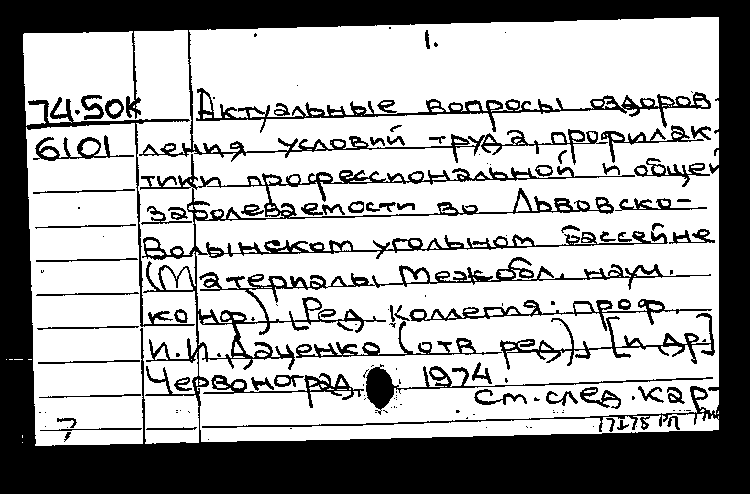 1.
74.50К Актуальные вопросы оздоров-
6101 ления условий труда, профилак-
тики профессиональной и общей
заболеваемости во Львовско-
Волынском угольном бассейне
(Материалы Межобл. науч.
конф.) [Ред. коллегия: проф.
И.И. Даценко (отв ред), [и др.]
Червоноград, 1974.
см. след. кар-
7